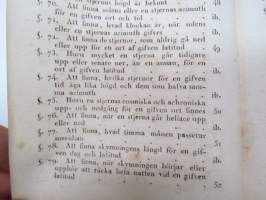 stjernas högd är bekant 48
§. 70. Att finna solens eller en stjernas azimuth
för en gifven ort och tid ib.
§. 71. Att finna, hvad klockan är, när solens
eller en stjernas azimuth är gifven ib.
§. 72. Att finna de stjernor, som aldrig gå ned
eller upp för en ort af gifven latitud 49
§. 73. Huru mycket en stjerna går tidigare
upp eller senare ner, än en annan, för en ort
af gifven latitud ib.
§. 74. Att finna, hvilka stjernor för en gifven
tid äga lika högd och dem som hafva samma
azimuth ib.
§. 75. Huru en stjernas cosmiska och achroniska
upp- och nedgång för en gifven ort finnes
§. 76. Att finna, när en stjerna går heliace upp
eller ned ib.
§. 77. Att finna, hvad timma månen passerar
meridian ib.
§. 78. Att finna skymningens längd för en gifven
dag och latitud ib.
§. 79. Att finna, när skymningen börjar eller
upphör att räcka hela natten vid en gifven
latitud 52